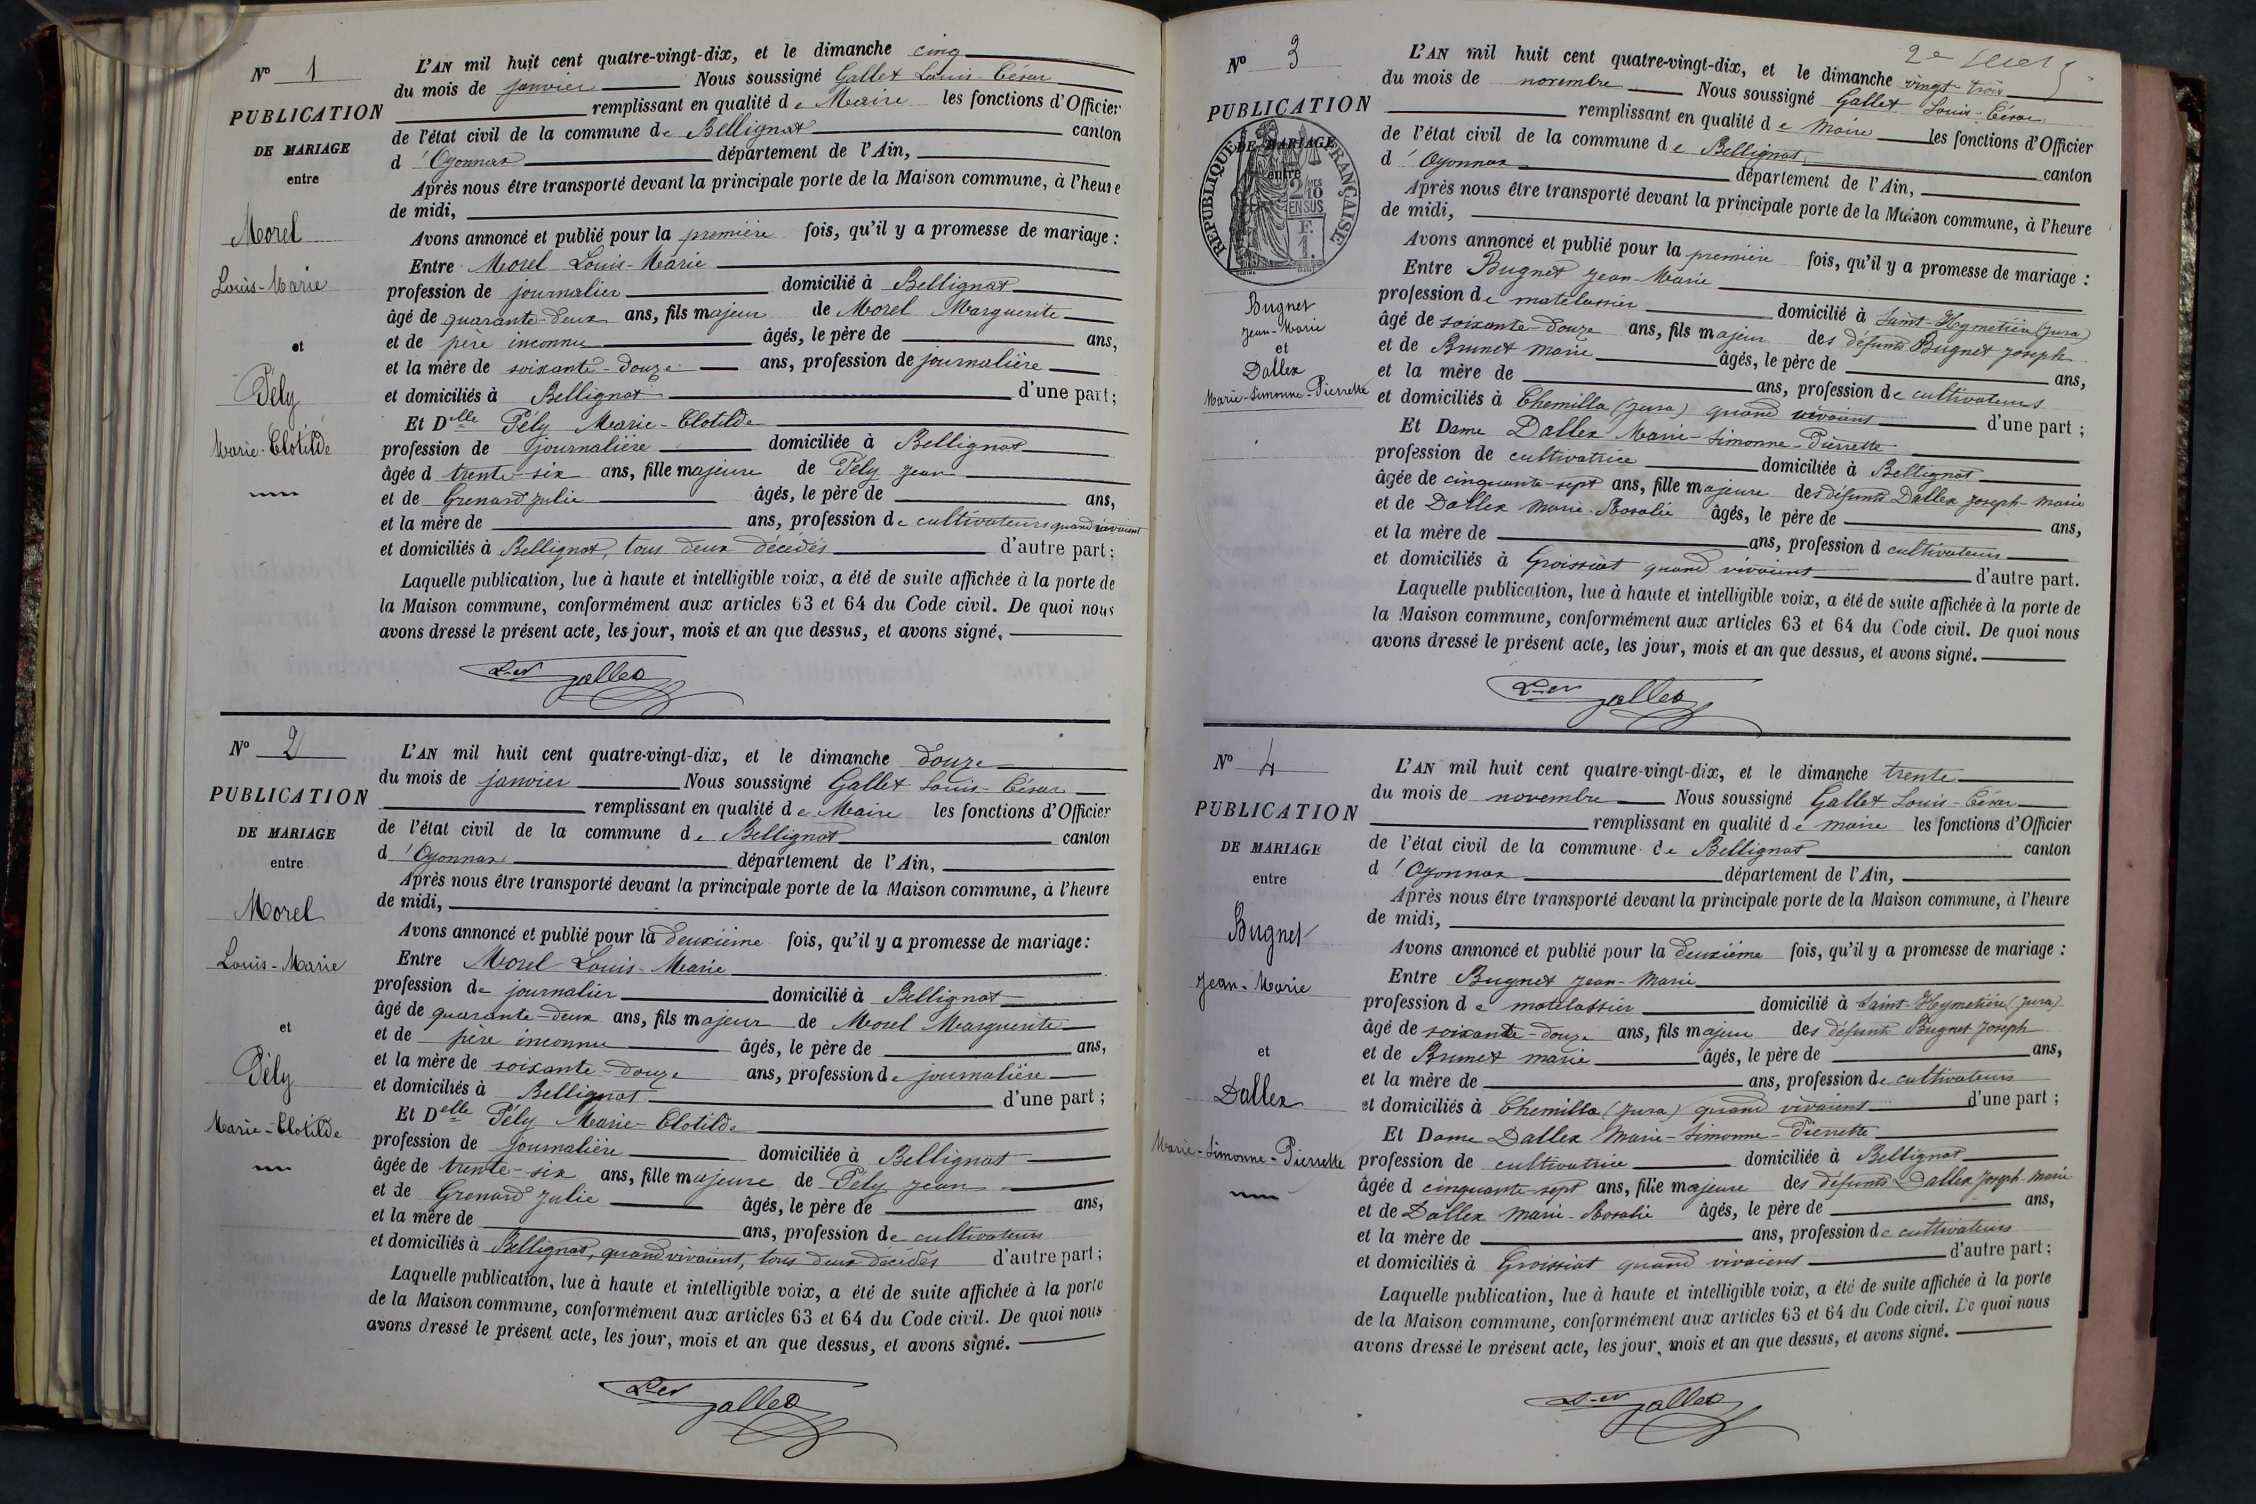 N° 1
PUBLICATION
DE MARIAGE
entre
Morel
Louis-Marie
et
Pély
Marie-Clotilde
L'AN mil huit cent quatre-vingt-dix, et le dimanche cinq
du mois de janvier Nous soussigné Gallet Louis-César
remplissant en qualité de Maire les fonctions d'Officier
de l'état civil de la commune de Bellignat canton
d'Oyonnax département de l'Ain,
Après nous être transporté devant la principale porte de la Maison commune, à l'heure
de midi,
Avons annoncé et publié pour la première fois, qu'il y a promesse de mariage :
Entre Morel Louis-Marie
profession de journalier domicilié à Bellignat
âgé de quarante-deux ans, fils majeur de Morel Marguerite
et de père inconnu âgés, le père de ans,
et la mère de soixante-douze ans, profession de journalière
et domiciliés à Bellignat d'une part ;
Et Delle Pély Marie-Clotilde
profession de journalière domiciliée à Bellignat
âgée d trente-six ans, fille majeure de Pély Jean
et de Grenard Julie âgés, le père de ans,
et la mère de ans, profession de cultivateurs quand vivaient
et domiciliés à Bellignat, tous deux décédés d'autre part ;
Laquelle publication, lue à haute et intelligible voix, a été de suite affichée à la porte de
la Maison commune, conformément aux articles 63 et 64 du Code civil. De quoi nous
avons dressé le présent acte, les jour, mois et an que dessus, et avons signé.
Gallet
N° 2
PUBLICATION
DE MARIAGE
entre
Morel
Louis-Marie
et
Pély
Marie-Clotilde
L'AN mil huit cent quatre-vingt-dix, et le dimanche douze
du mois de janvier Nous soussigné Gallet Louis-César
remplissant en qualité de Maire les fonctions d'Officier
de l'état civil de la commune de Bellignat canton
d'Oyonnax département de l'Ain,
Après nous être transporté devant la principale porte de la Maison commune, à l'heure
de midi,
Avons annoncé et publié pour la deuxième fois, qu'il y a promesse de mariage :
Entre Morel Louis-Marie
profession de journalier domicilié à Bellignat
âgé de quarante-deux ans, fils majeur de Morel Marguerite
et de père inconnu âgés, le père de ans,
et la mère de soixante-douze ans, profession de journalière
et domiciliés à Bellignat d'une part ;
Et Delle Pély Marie-Clotilde
profession de journalière domiciliée à Bellignat
âgée de trente-six ans, fille majeure de Pély Jean
et de Grenard Julie âgés, le père de ans,
et la mère de ans, profession de cultivateurs
et domiciliés à Bellignat, quand vivaient, tous deux décédés d'autre part ;
Laquelle publication, lue à haute et intelligible voix, a été de suite affichée à la porte
de la Maison commune, conformément aux articles 63 et 64 du Code civil. De quoi nous
avons dressé le présent acte, les jour, mois et an que dessus, et avons signé.
Gallet
2e
N° 3
PUBLICATION
DE MARIAGE
entre
RÉPUBLIQUE FRANÇAISE
2/10 EN SUS
F. 1.
Bugnet
Jean-Marie
et
Dallex
Marie-Simonne-Pierrette
L'AN mil huit cent quatre-vingt-dix, et le dimanche vingt-trois
du mois de novembre Nous soussigné Gallet Louis-César
remplissant en qualité de Maire les fonctions d'Officier
de l'état civil de la commune de Bellignat canton
d'Oyonnax département de l'Ain,
Après nous être transporté devant la principale porte de la Maison commune, à l'heure
de midi,
Avons annoncé et publié pour la première fois, qu'il y a promesse de mariage :
Entre Bugnet Jean-Marie
profession de matelassier domicilié à Saint-Hymetière (Jura)
âgé de soixante-douze ans, fils majeur des défunts Bugnet Joseph
et de Brunet Marie âgés, le père de ans,
et la mère de ans, profession de cultivateurs
et domiciliés à Chemilla (Jura) quand vivaient d'une part ;
Et Dame Dallex Marie-Simonne-Pierrette
profession de cultivatrice domiciliée à Bellignat
âgée de cinquante-sept ans, fille majeure des défunts Dallex Joseph-Marie
et de Dallex Marie-Rosalie âgés, le père de ans,
et la mère de ans, profession d cultivateurs
et domiciliés à Groissiat quand vivaient d'autre part.
Laquelle publication, lue à haute et intelligible voix, a été de suite affichée à la porte de
la Maison commune, conformément aux articles 63 et 64 du Code civil. De quoi nous
avons dressé le présent acte, les jour, mois et an que dessus, et avons signé.
Gallet
N° 4
PUBLICATION
DE MARIAGE
entre
Bugnet
Jean-Marie
et
Dallex
Marie-Simonne-Pierrette
L'AN mil huit cent quatre-vingt-dix, et le dimanche trente
du mois de novembre Nous soussigné Gallet Louis-César
remplissant en qualité de maire les fonctions d'Officier
de l'état civil de la commune de Bellignat canton
d'Oyonnax département de l'Ain,
Après nous être transporté devant la principale porte de la Maison commune, à l'heure
de midi,
Avons annoncé et publié pour la deuxième fois, qu'il y a promesse de mariage :
Entre Bugnet Jean-Marie
profession de matelassier domicilié à Saint-Hymetière (Jura)
âgé de soixante-douze ans, fils majeur des défunts Bugnet Joseph
et de Brunet marie âgés, le père de ans,
et la mère de ans, profession de cultivateurs
et domiciliés à Chemilla (Jura) quand vivaient d'une part ;
Et Dame Dallex Marie-Simonne-Pierrette
profession de cultivatrice domiciliée à Bellignat
âgée d cinquante-sept ans, fille majeure des défunts Dallex Joseph-Marie
et de Dallex Marie-Rosalie âgés, le père de ans,
et la mère de ans, profession de cultivateurs
et domiciliés à Groissiat quand vivaient d'autre part ;
Laquelle publication, lue à haute et intelligible voix, a été de suite affichée à la porte
de la Maison commune, conformément aux articles 63 et 64 du Code civil. De quoi nous
avons dressé le présent acte, les jour, mois et an que dessus, et avons signé.
Gallet